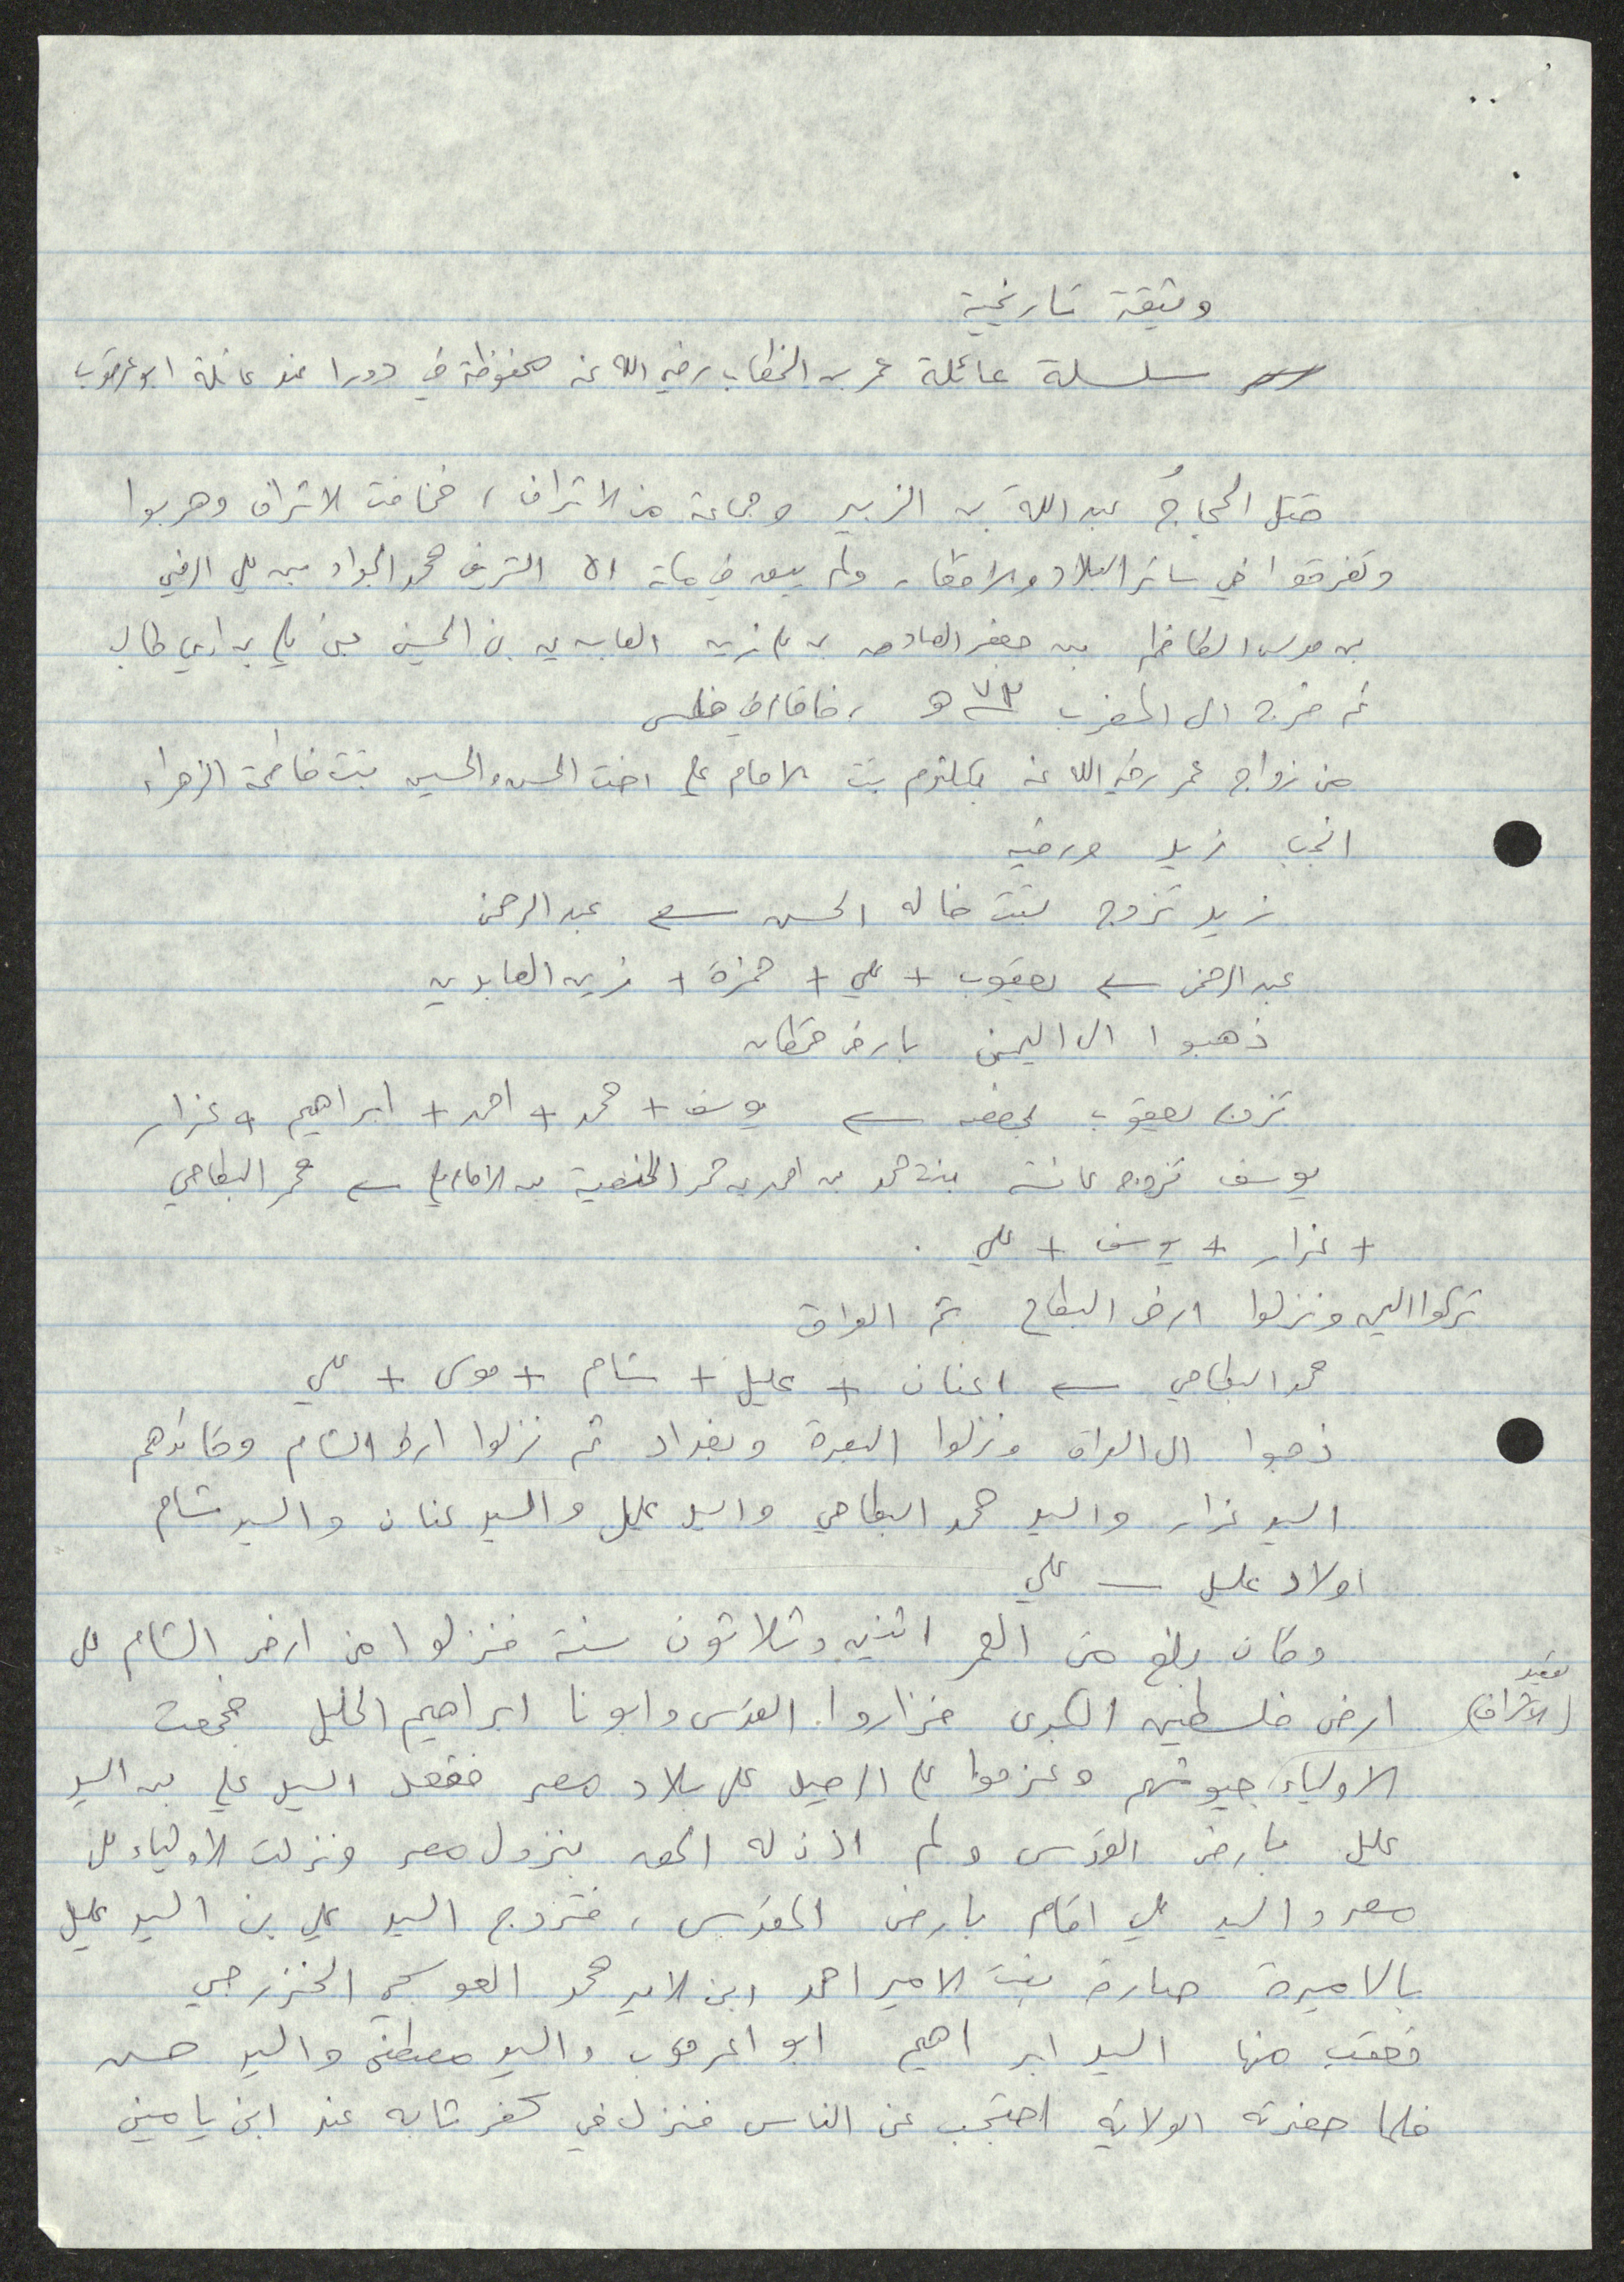 وثيقة تاريخية
سلسلة عائلة عمر بن الخطاب رضي الله عنه محفوظة في دورا عند عائلة ابو عرقوب
قتل الحجاجُ عبد الله بن الزبير وجماعة من الاشراف ، فخافت الاشراف وهربوا
وتفرقوا في سائر البلاد والاقطار ولم يبق في مكة الا الشريف محمد الجواد بن علي الرضي
بن موسى الكاظم بن جعفر الصادق بن زين العابدين بن الحسين بن علي بن ابي طالب
ثم خرج الى المغرب سنة ٧٣ هـ ، فاقام في فاس
من زواج عمر رضي الله عنه بكلثوم بنت الامام علي اخت الحسن والحسين بنت فاطمة الزهراء
انجب زيد ورقية
زيد تزوج بنت خاله الحسن ← عبد الرحمن
عبد الرحمن ← يعقوب + علي + حمزة + زين العابدين
ذهبوا الى اليمن بارض قحطان
تزوج يعقوب بحفصة ← يوسف + محمد + احمد + ابراهيم + غزار
يوسف تزوج عائشة بنت محمد بن احمد بن محمد الحنفية بن الامام علي ← محمد البطاحي
+ غزار + يوسف + علي .
تركوا اليمن ونزلوا ارض البطاح ثم العراق
محمد البطاحي ← اعنان + عليل + شام + موسى + علي
ذهبوا الى العراق ونزلوا البصرة وبغداد ثم نزلوا ارض الشام وقائدهم
السيد غزار والسيد محمد البطاحي والسيد عليل والسيد عنان والسيد شام
اولاد عليل — علي
وكان بلغ من العمر اثنين وثلاثون سنة فنزلوا من ارض الشام على
ارض فلسطين الكبرى فزاروا القدس وابونا ابراهيم الخليل فجمعت
(الاشراف)
الاولياء جيوشهم وعزموا على الرحيل على بلاد مصر فقعد السيد علي بن السيد
عليل بارض القدس ولم اذن له الحق بنزول مصر ونزلت الاولياء على
مصر والسيد علي اقام بارض المقدس ، فتزوج السيد علي بن السيد عليل
بالاميرة صارة بنت الامير احمد ابن الامير محمد العوسجي الخزرجي
فعقب منها السيد ابراهيم ابو اعرقوب والسيد مصطفى والسيد حسن
فلما حضرته الولاية احتجب عن الناس فنزل في كفر ثابه عند ابن يامين